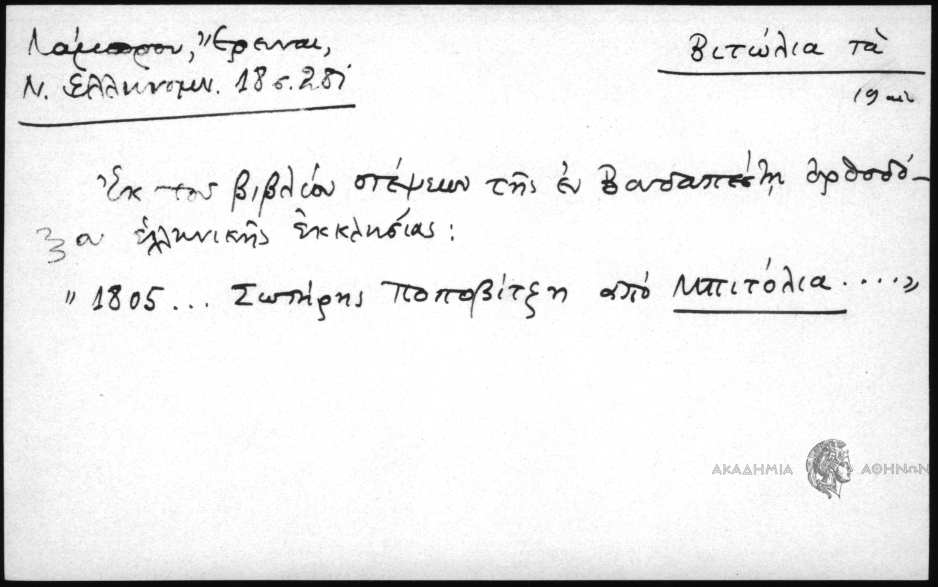 Λάμπρου, Ἔρευναι,
Ν. Ἑλληνομν. 18 σ. 281
Βιτώλια τὰ
19
Ἐκ του βιβλίου στέψεων τῆς ἐν Βουδαπέστῃ ὀρθοδό-
ξου ἑλληνικῆς ἐκκλησίας:
"1805... Σωτήρης Ποποβίτζη από Μπιτόλια....»
ΑΚΑΔΗΜΙΑ ΑΘΗΝΩΝ